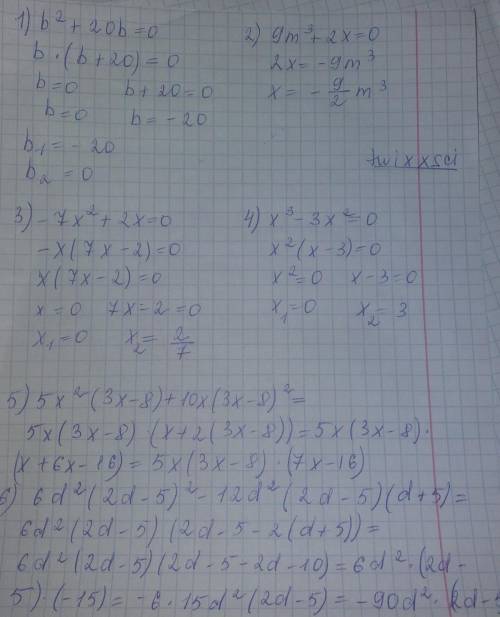 1) b² + 20b = 0
b · (b + 20) = 0
b = 0 b + 20 = 0
b = 0 b = - 20
b₁ = - 20
b₂ = 0
2) 9m³ + 2x = 0
2x = - 9m³
x = - 9/2 m³
twixxsci
3) - 7x² + 2x = 0
- x (7x - 2) = 0
x (7x - 2) = 0
x = 0 7x - 2 = 0
x₁ = 0 x₂ = 2/7
4) x³ - 3x² = 0
x² (x - 3) = 0
x² = 0 x - 3 = 0
x₁ = 0 x₂ = 3
5) 5x² (3x - 8) + 10x (3x - 8)² =
5x (3x - 8) · (x + 2 (3x - 8)) = 5x (3x - 8) ·
(x + 6x - 16) = 5x (3x - 8) · (7x - 16)
6) 6d² (2d - 5)² - 12d² (2d - 5) (d + 5) =
6d² (2d - 5) (2d - 5 - 2 (d + 5)) =
6d² (2d - 5) (2d - 5 - 2d - 10) = 6d² · (2d -
5) · (- 15) = - 6 · 15d² (2d - 5) = - 90d² · (2d - 5